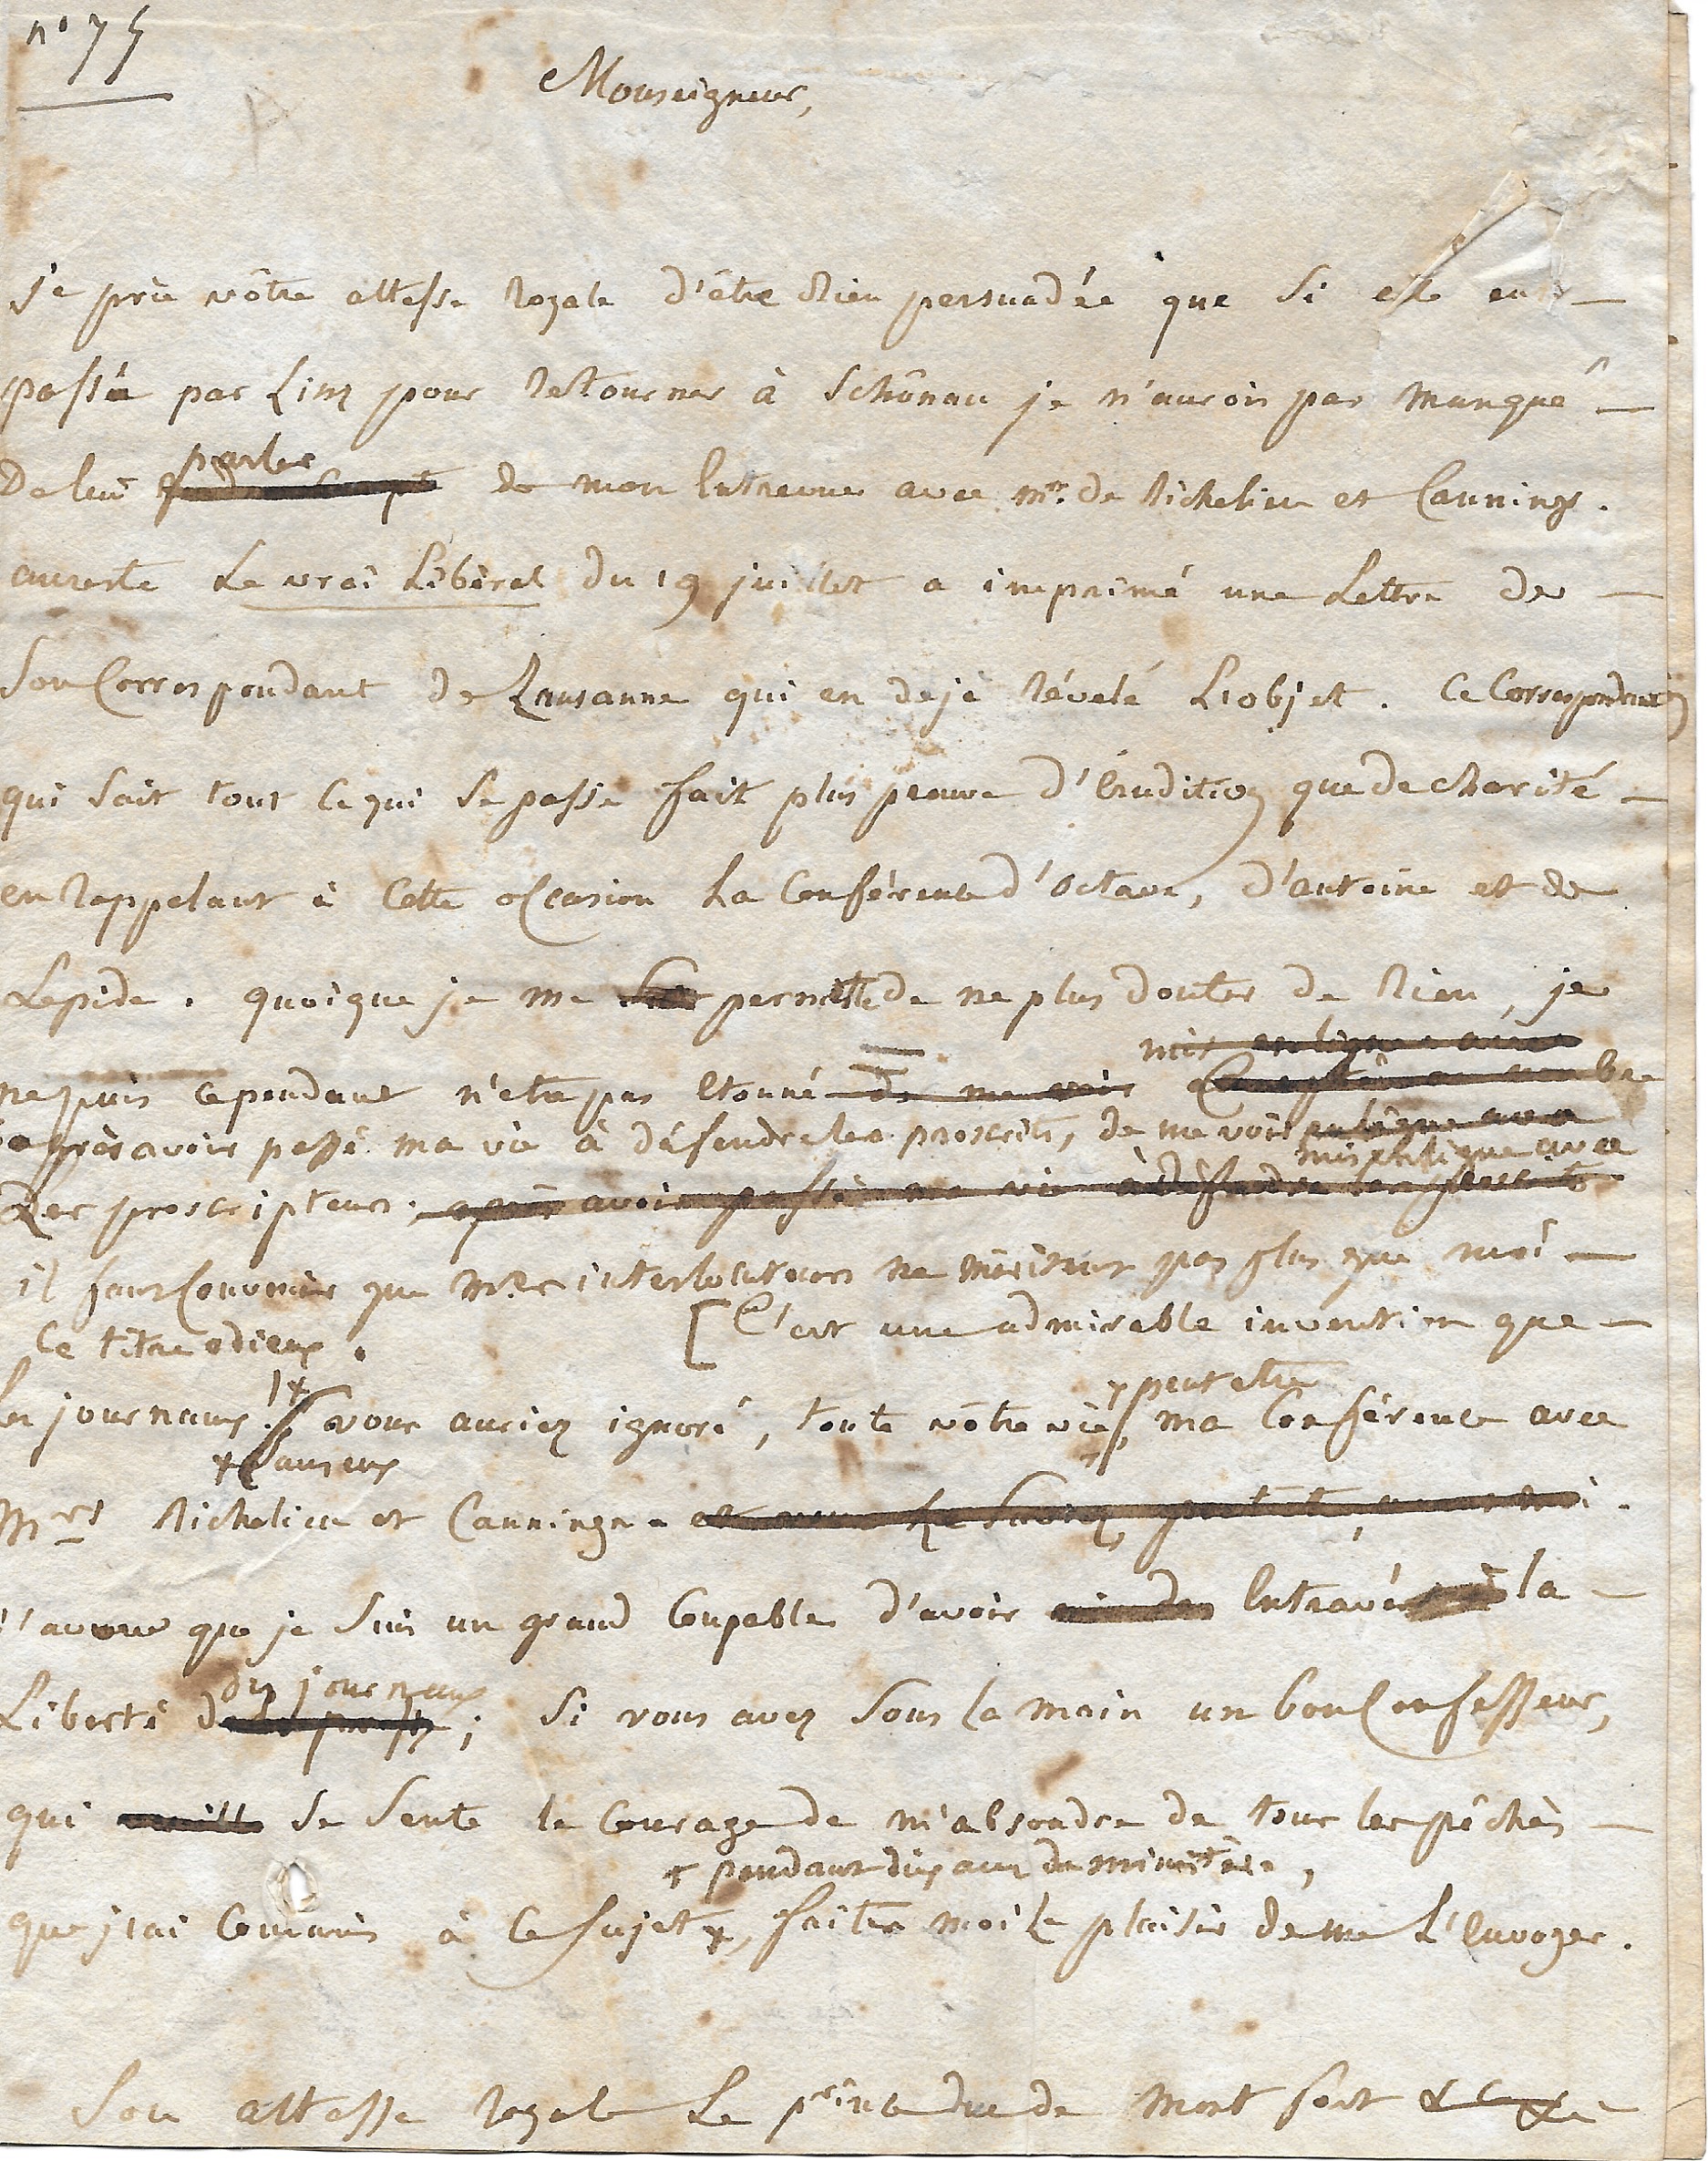 n° 75
Monseigneur,
Je prie vôtre altesse royale d'être bien persuadée que si elle eut
passée par Linz pour retourner à Schönau je n'aurois pas manqué
parler
De lui de mon Entrevue avec mrs. de Richelieu et Cannings.
aureste Le vrai Libéral du 19 juillet a imprimé une Lettre de
son Correspondant de Lausanne qui en a dejà révélé L'objet. Ce Correspondant
qui sait tout ce qui se passe fait plus preuve d'érudition que de charité
en rappelant à cette occasion La Conférence d'Octave, d'antoine et de
Lepide. quoique je me permette de ne plus douter de rien, je
mis en ligne avec
ne puis cependant n'etre pas étonné de me voir
après avoir passé ma vie à défendre les proscrits, de me voir en ligne avec
mis en ligne avec
Les proscripteurs. après avoir passé ma vie à défendre les proscrits
il faut convenir que mes interlocuteurs ne méritent pas plus que moi
Ce titre odieux. [C'est une admirable invention que
les journaux ! vous auriez ignoré, toute vôtre vie, ma Conférence avec
+ peut etre
+ fameux
Mrs Richelieu et Cannings et vous le saurez peut etre avant moi.
J'avoue que je suis un grand coupable d'avoir entravé la
des journaux
Liberté de la presse; si vous avez sous la main un bon Confesseur,
qui veuille se sente le Courage de m'absoudre de tous les péchés
+ pendant dix ans de ministère,
que j'ai commis à ce sujet +, faites moi le plaisir de me L'Envoyer.
Son altesse royale Le prince duc de Montfort